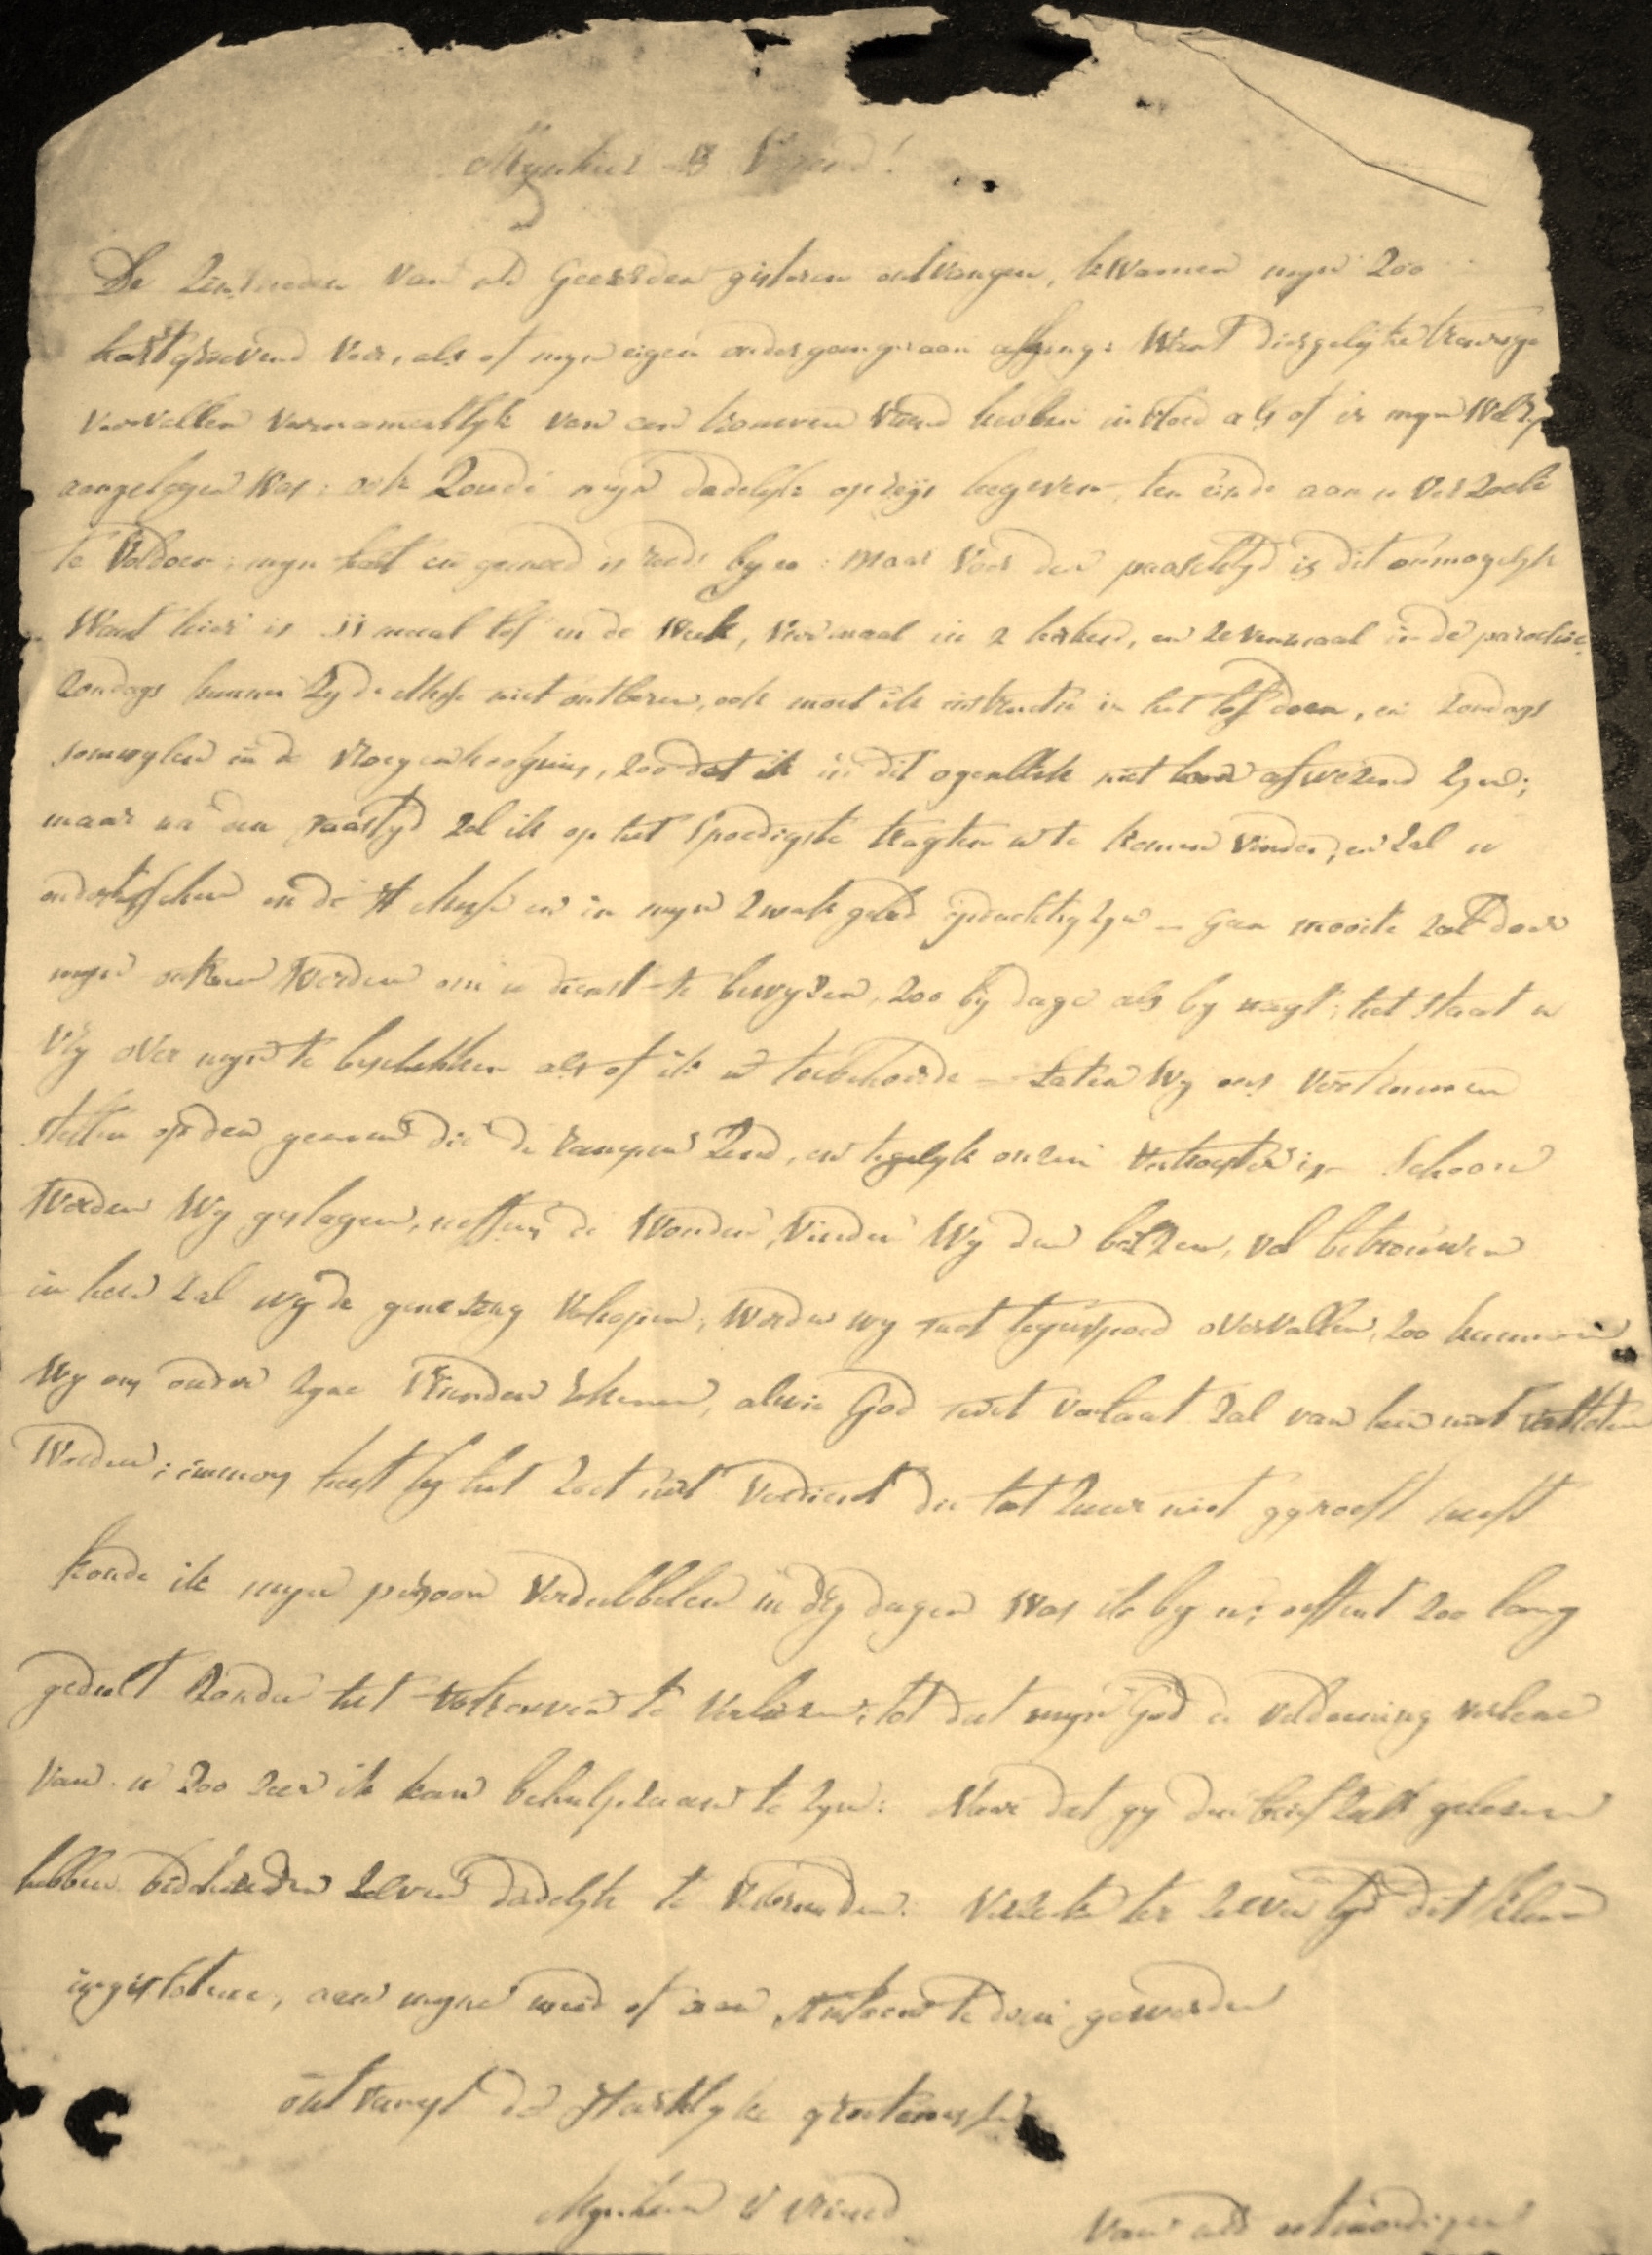 Mynheer & Vriend!
De Zinsneden van ued Geerden gisteren ontvangen, kwamen myn zoo
hartgrievend voor, als of myn eigen ondergang er aan afhing: want diergelyke treurige
voorvallen voornamentlyk van een trouwen vriend hebben invloed als of er myn
aangelegen was: ook zoude myn dadelyk op reys begeven, ten einde aan u verzoek
te voldoen: myn hart en gemoed is reeds by u: maar voor den paaschtyd is dit onmogelyk
want hier is 11 maal lof in de week, viermaal in 2 kerken, en zevenmaal in de parochie
zondags kunnen zy de Messe niet ontberen, ook moet ik instructie in het lof doen, en zondags
somwylen in de vroegen hoogmis, zoo dat ik in dit ogenblik niet kan afwezend zyn;
maar na den paastyd zal ik op het spoedigste tragten u te komen vinden, en zal u
ondertusschen in de H Messe en in myn zwak gebed gedachtig zyn – geen moeite zal door
myn worden om u dienst te bewyzen, zoo by dage als by nagt; het staat u
vry over myn te beschikken als of ik u toebehoorde – Laten wy ons vertrouwen
stellen op den geenen die de rampen zend, en tegelyk onzen vertrooster is – Schoon
worden wy geslagen, neffens de wonden vinden wy den balzem, vol betrouwen
in hem zal wy de genezing verhopen, worden wy met tegenspoed overvallen, zoo kunnen
wy ons onder zyne vrienden rekenen, alwie God niet verlaat zal van hem niet verlaten
worden; immers heeft hy het zoet niet verdient die het zuur niet geproeft heeft
konde ik myn persoon verdubbelen in dry dagen was ik by u; oeffent zoo lang
gedult zonder het vertrouwen te verliezen; tot dat myn God de voldoening verleene
van u zoo zeer ik kan behulpzaam te zyn: Mere dat gy den brief zult gelezen
hebben zelven dadelyk te verbranden. verzoeke ter zelver tyd dit
ingeslotene, aan myne meid of aan te doen geworden
ontvangt de Hartelyke groetenissen
Mynheer & vriend
van ued ootmoedigen